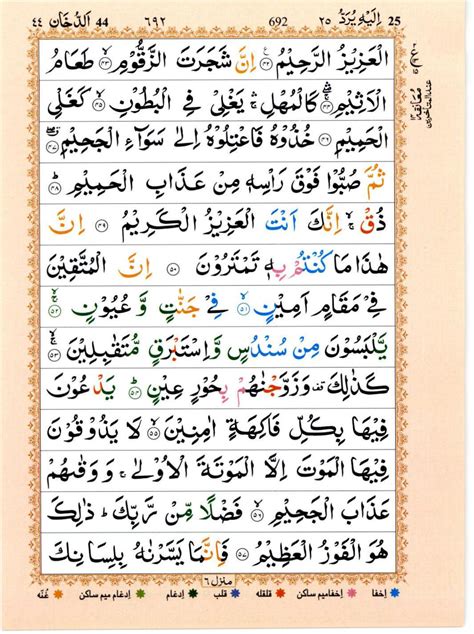 ٤٤ اَلدُّخَان 44 ٦٩٢ 692 اِلَيْهِ يُرَدُّ ٢٥ 25
الْعَزِيْزُ الرَّحِيْمُ ۟﴿٤٢﴾ اِنَّ شَجَرَتَ الزَّقُّوْمِ ۙ﴿٤٣﴾ طَعَامُ
الْاَثِيْمِ ۛۚ﴿٤٤﴾ كَالْمُهْلِ ۛۚ يَغْلِىْ فِى الْبُطُوْنِ ۙ﴿٤٥﴾ كَغَلْىِ
الْحَمِيْمِ ﴿٤٦﴾ خُذُوْهُ فَاعْتِلُوْهُ اِلٰى سَوَآءِ الْجَحِيْمِ ۖ﴿٤٧﴾
ثُمَّ صُبُّوْا فَوْقَ رَاْسِهٖ مِنْ عَذَابِ الْحَمِيْمِ ؕ﴿٤٨﴾
ذُقْ ۙۚ اِنَّكَ اَنْتَ الْعَزِيْزُ الْكَرِيْمُ ﴿٤٩﴾ اِنَّ
هٰذَا مَا كُنْتُمْ بِهٖ تَمْتَرُوْنَ ﴿٥٠﴾ اِنَّ الْمُتَّقِيْنَ
فِىْ مَقَامٍ اَمِيْنٍ ۙ﴿٥١﴾ فِىْ جَنّٰتٍ وَّعُيُوْنٍ ۚۙ﴿٥٢﴾
يَّلْبَسُوْنَ مِنْ سُنْدُسٍ وَّاِسْتَبْرَقٍ مُّتَقٰبِلِيْنَ ۚۙ﴿٥٣﴾
كَذٰلِكَ وَزَوَّجْنٰهُمْ بِحُوْرٍ عِيْنٍ ؕ﴿٥٤﴾ يَدْعُوْنَ
فِيْهَا بِكُلِّ فَاكِهَةٍ اٰمِنِيْنَ ۙ﴿٥٥﴾ لَا يَذُوْقُوْنَ
فِيْهَا الْمَوْتَ اِلَّا الْمَوْتَةَ الْاُوْلٰى ۚ وَوَقٰىهُمْ
عَذَابَ الْجَحِيْمِ ۙ﴿٥٦﴾ فَضْلًا مِّنْ رَّبِّكَ ؕ ذٰلِكَ
هُوَ الْفَوْزُ الْعَظِيْمُ ﴿٥٧﴾ فَاِنَّمَا يَسَّرْنٰهُ بِلِسَانِكَ
منزل ٦
اخفا اخفامیم ساكن قلقله قلب ادغام ادغام میم ساكن غُنّه